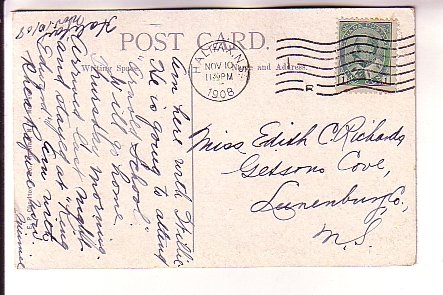 POST CARD.
Writing Space
Name and Address.
HALIFAX, N.S.
NOV 10
11:30PM
1908
Halifax
Nov. 10/08
Am here with Willie
He is going to attend
School."
Will go home
Thursday morning.
Arrived last night
and stayed at "King
Edward" Am with
now.
Minnie
Miss Edith C. Richards
Getsons Cove,
Lunenburg Co.,
N.S.